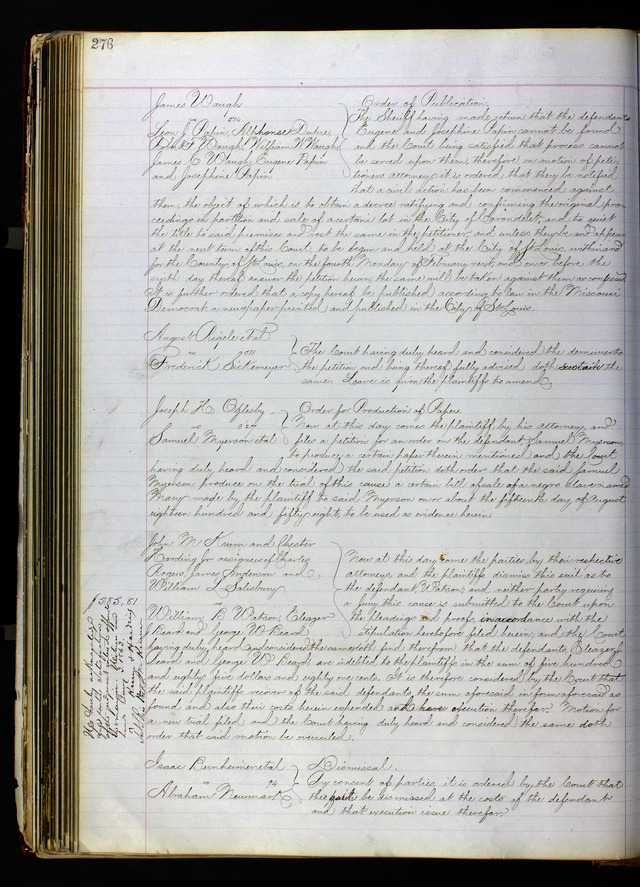 276
James Waugh
Order of Publication.
Leon J. Papin, Alphonse Dutre,
Robert F. Waugh, William W. Waugh
James C Waugh, Eugene Papin
and Josephine Papin
The Sheriff having made return that the defendants
Eugene and Josephine Papin cannot be found
and the Court being satisfied that process cannot
be served upon them, therefore on motion of peti-
tioners attorney, it is ordered that they be notified
that a civil action has been commenced against
them, the object of which is to obtain a decree ratifying and confirming the original pro-
ceedings in partition and sale of a certain lot in the City of Carondelet, and to quiet
the title to said premises and vest the same in the petitioner, and unless they be and appear
at the next term of this Court, to be begun and held at the City of St Louis, within and
for the County of St Louis, on the fourth Monday of February next and on or before the
sixth day thereof answer the petition herein the same will be taken against them as confessed
It is further ordered that a copy hereof be published according to law in the Missouri
Democrat, a newspaper printed and published in the City of St Louis.
August et al
vs
Frederick
The Court having duly heard and considered the demurrer to
the petition and being thereof fully advised doth sustain the
same. Leave is given the plaintiffs to amend.
Joseph H. Oglesby
vs 327
Samuel Myerson et al
Order for Production of Paper.
Now at this day comes the plaintiff by his attorney, and
files a petition for an order on the defendant Samuel Myerson,
to produce a certain paper therein mentioned and the Court
having duly heard and considered the said petition doth order that the said Samuel
Myerson produce on the trial of this cause a certain bill of sale of a negro slave named
Mary made by the plaintiff to said Myerson on or about the fifteenth day of August
eighteen hundred and fifty eight, to be used as evidence herein.
John M Krum and Chester
Harding Jr assignees of Charles
Rogers, James Anderson and
William L Salisbury
vs
William B Watson, Eleazer
Beard and George W Beard
Now at this day come the parties by their respective
attorneys, and the plaintiffs dismiss this suit as to
the defendant, Watson, and neither party requiring
a jury this cause is submitted to the Court upon
the pleadings and proofs, in accordance with the
stipulation heretofore filed herein, and the Court
having duly heard and considered the same doth find therefrom that the defendants Eleazer
Beard and George W Beard are indebted to the plaintiffs in the sum of five hundred
and eighty five dollars and eighty one cents. It is therefore considered by the Court that
the said plaintiffs recover of the said defendants, the sum aforesaid in form aforesaid as
found and also their costs herein expended and have execution therefor. Motion for
a new trial filed and the Court having duly heard and considered the same doth
order that said motion be overruled.
$585.81
Isaac et al
vs 94
Abraham Newmark
Dismissal.
By consent of parties, it is ordered by the Court that
this suit be dismissed at the costs of the defendant
and that execution issue therefor.